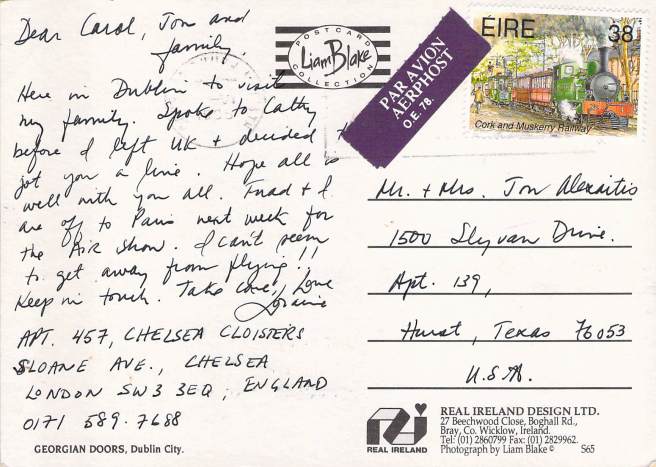 Dear Carol, Jon and
family.
Here in Dublin to visit
my family. Spoke to Cathy
before I left UK + decided t
jot you a line. Hope all is
well with you all. Fuad + I
are off to Paris next week for
the Air Show. I can't seem
to get away from flying!!
Keep in touch. Take care!! Love
Loraine
APT. 457, CHELSEA CLOISTERS
SLOANE AVE., CHELSEA
LONDON SW3 3EQ, ENGLAND
0171 589.7688
GEORGIAN DOORS, Dublin City.
POSTCARD
Liam Blake
COLLECTION
PAR AVION
AERPHOST
O.E. 78.
ÉIRE 38
Cork and Muskerry Railway
Mr. + Mrs. Jon
1500 Slyvan Drive.
Apt. 139,
Hurst, Texas 76053
U.S.A.
REAL IRELAND
REAL IRELAND DESIGN LTD.
27 Beechwood Close, Boghall Rd.,
Bray, Co. Wicklow, Ireland.
Tel: (01) 2860799 Fax: (01) 2829962.
Photograph by Liam Blake © S65